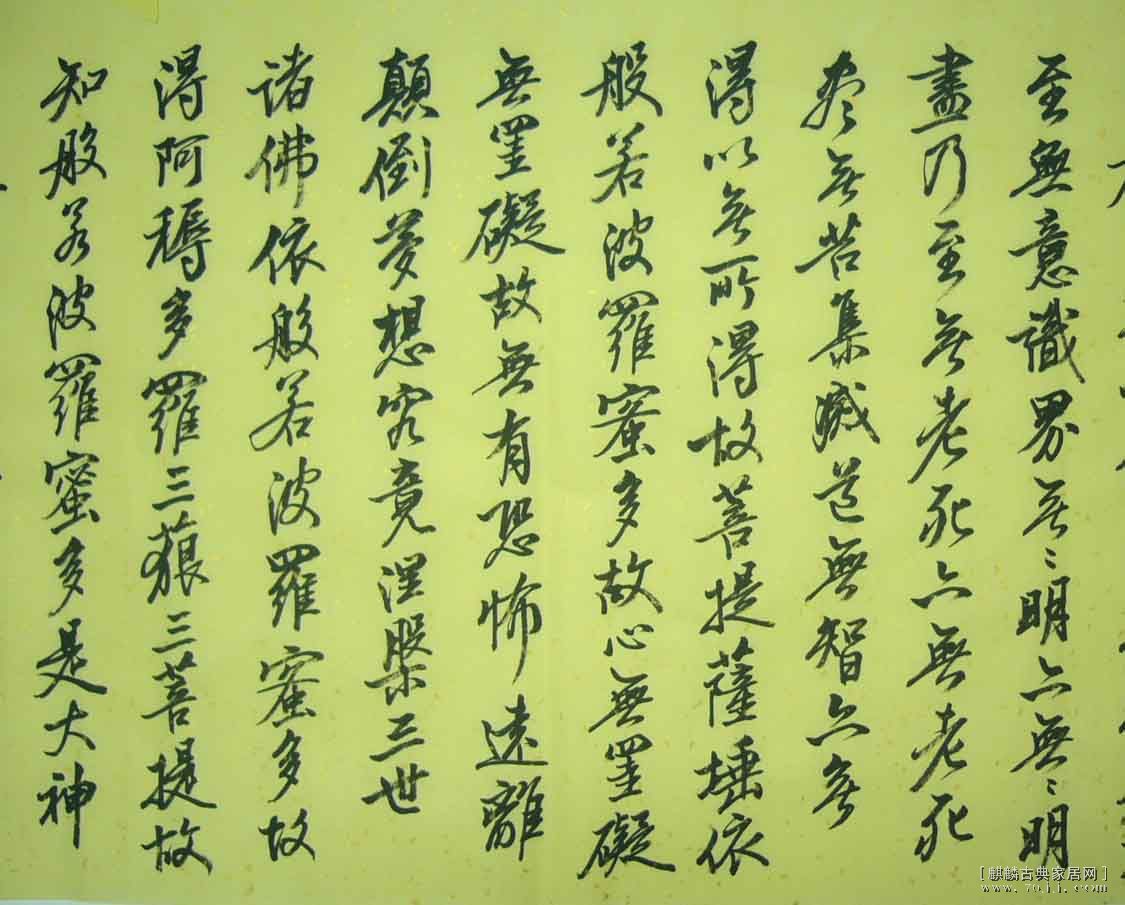 至無意識界無〻明亦無〻明
盡乃至無老死亦無老死
尽無苦集滅道無智亦無
得以無所得故菩提薩埵依
般若波羅蜜多故心無罣礙
無罣礙故無有恐怖遠離
顛倒夢想究竟涅槃三世
諸佛依般若波羅蜜多故
得阿耨多羅三藐三菩提故
知般若波羅蜜多是大神
[麒麟古典家居网]